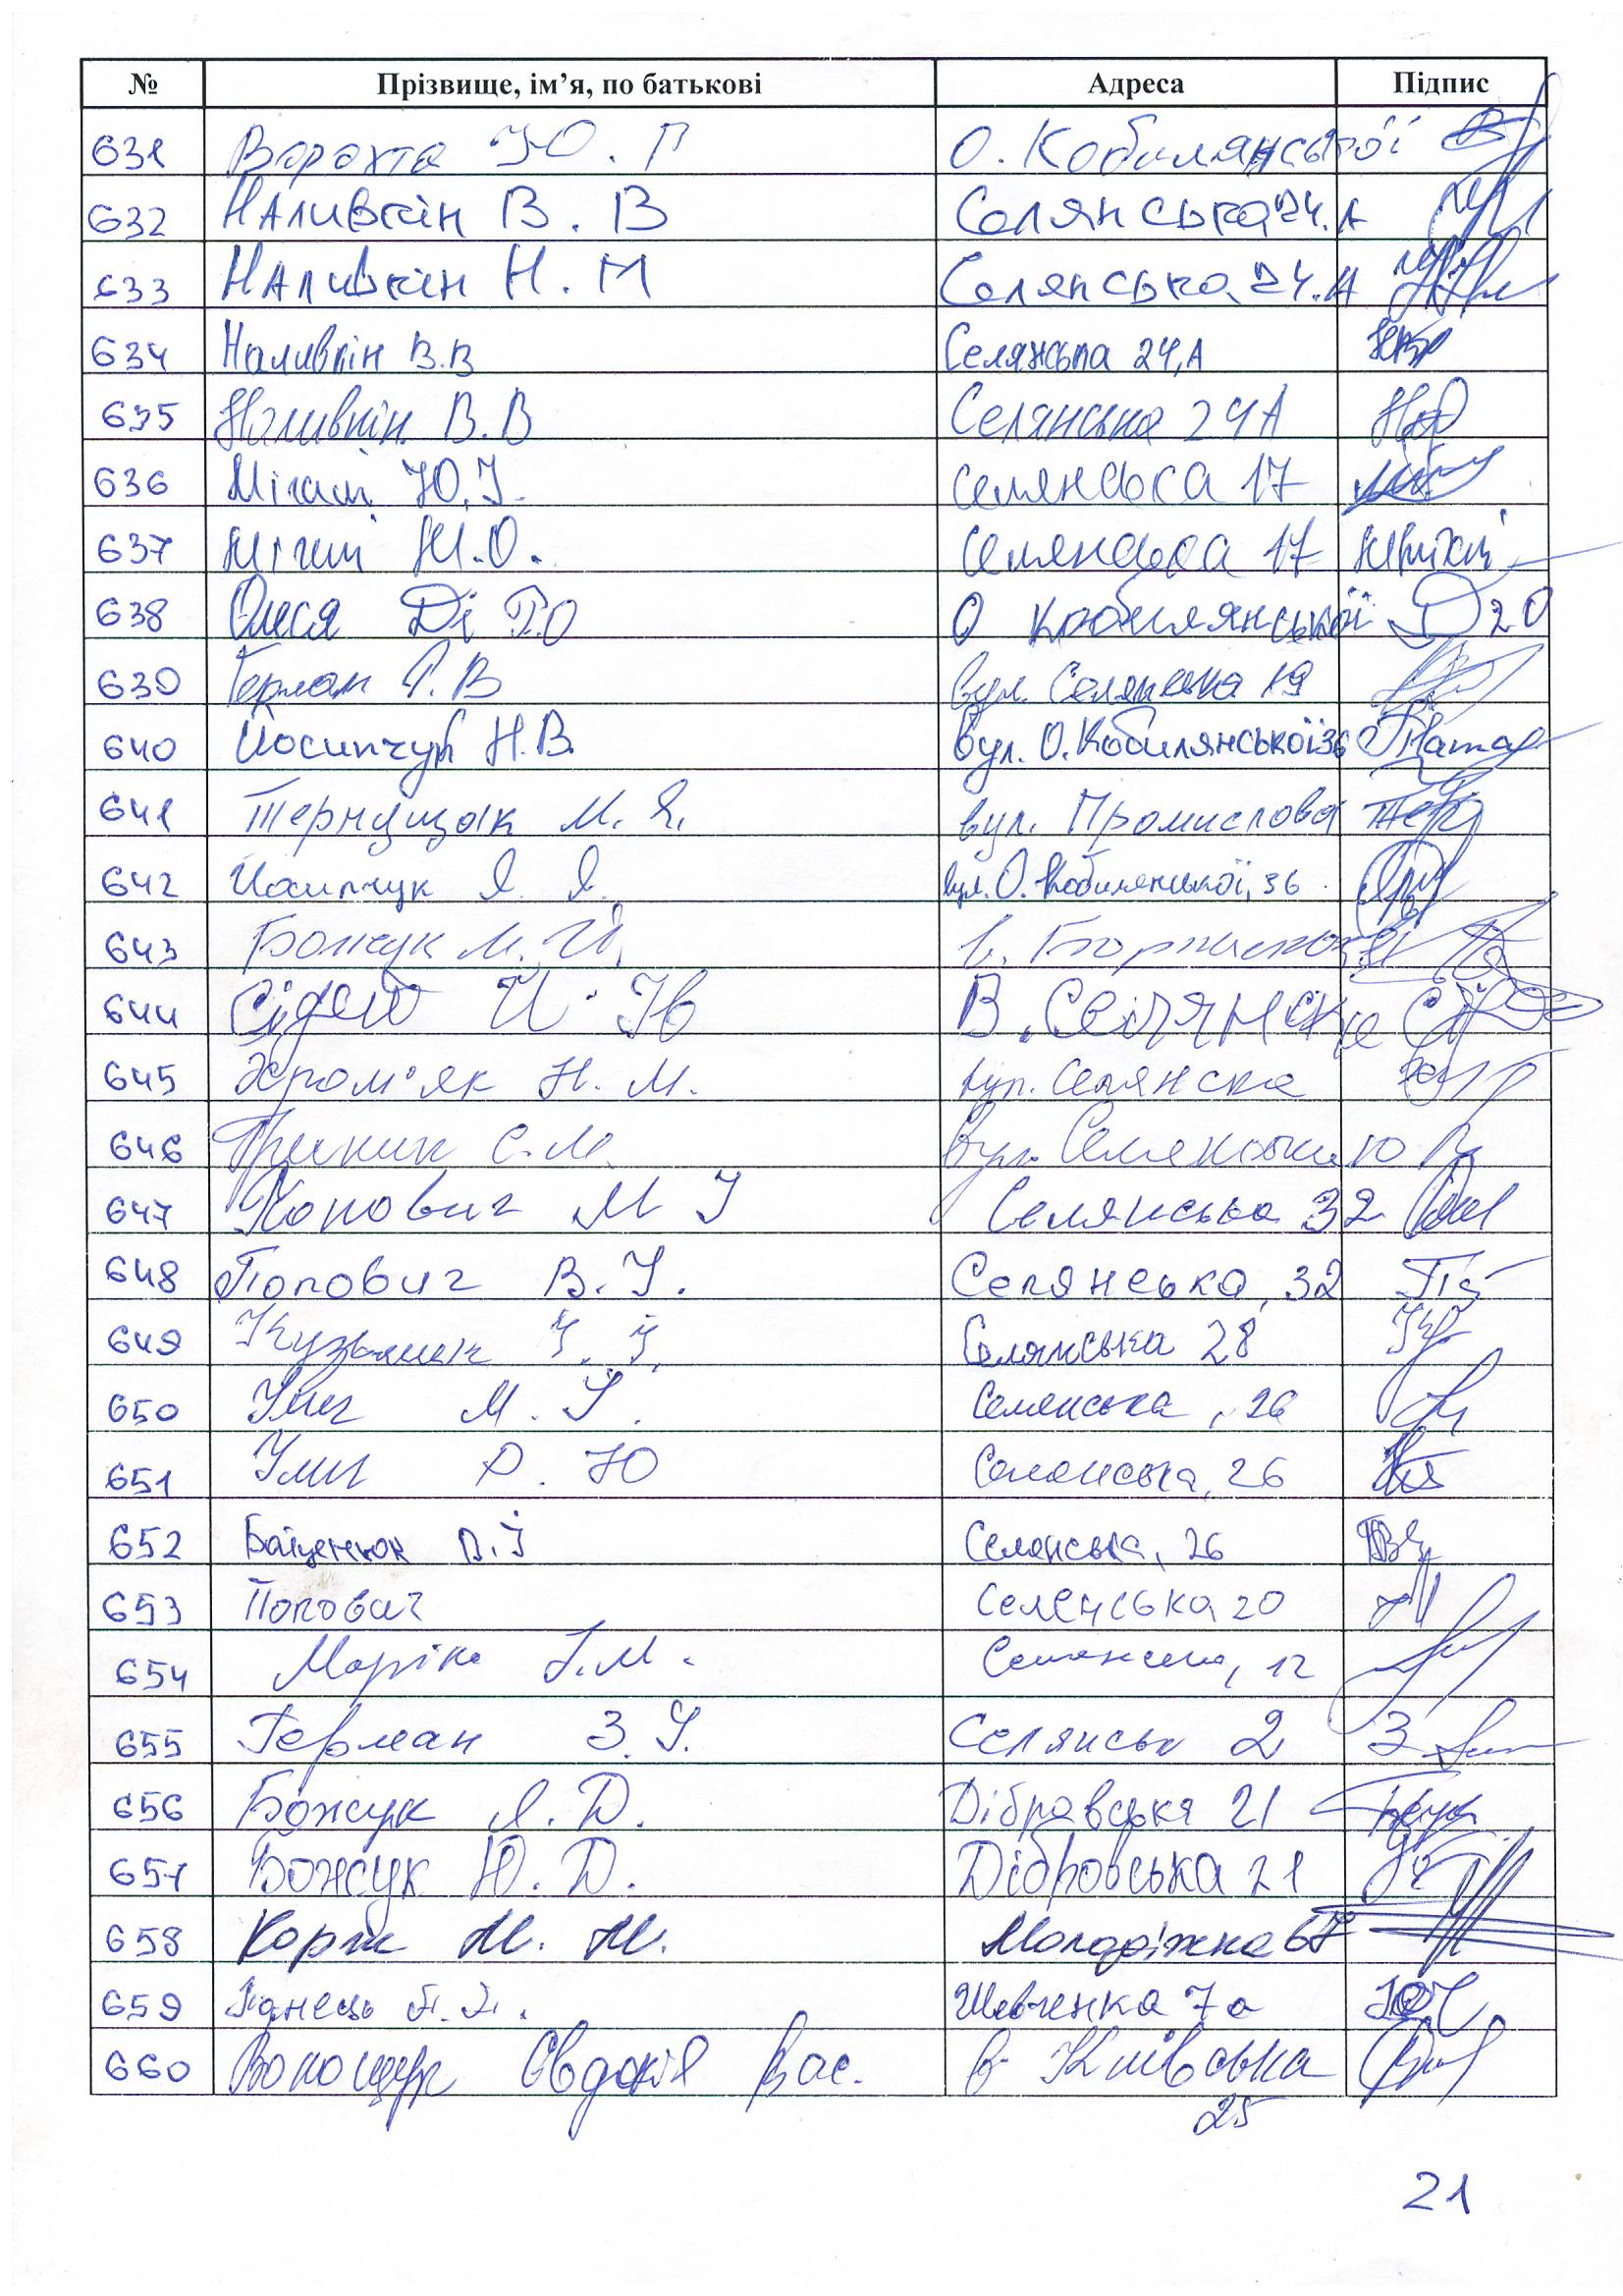 № Прізвище, ім’я, по батькові Адреса Підпис
631 Ворохта Ю. П О. Кобилянської
632 Наливкін В. В Селянська 24.А
633 Наливкін Н. М Селянська 24.А
634 Наливкін В.В Селянська 24,А
635 Наливкін В.В Селянська 24А
636 Ю.І. Селянська 17
637 М.О. Селянська 17
638 Олеся Ді Ро О Кобилянської 20
639 Герман Г.В вул. Селянська 19
640 Йосипчук Н.В. вул. О.Кобилянської 36
641 Тернущак М. Я. вул. Промислова
642 Йосипчук Я. Я. вул. О. Кобилянської, 36
643 Божук М. Й.
644 Сідей И. Ів В. Селянске
645 Хром'як Н. М. вул. Селянска
646 Гриник С.М. вул. Селянська 10
647 Попович М І Селянська 32
648 Попович В. І. Селянська, 32
649 Кузьмик Селянська 28
650 Улич М. І. Селянська, 26
651 Улич Р. Ю Селянська, 26
652 В.І Селянська, 26
653 Попович Селенська 20
654 Маріка І.М. Селянська, 12
655 Герман З. І. Селянськ 2
656 Божук Я. Д. Дібравська 21
657 Божук Ю. Д. Дібровська 21
658 Корж М. М. Молодіжна 67
659 Шевченка 7а
660 Волощук Євдокія Вас. в Київська
25
21